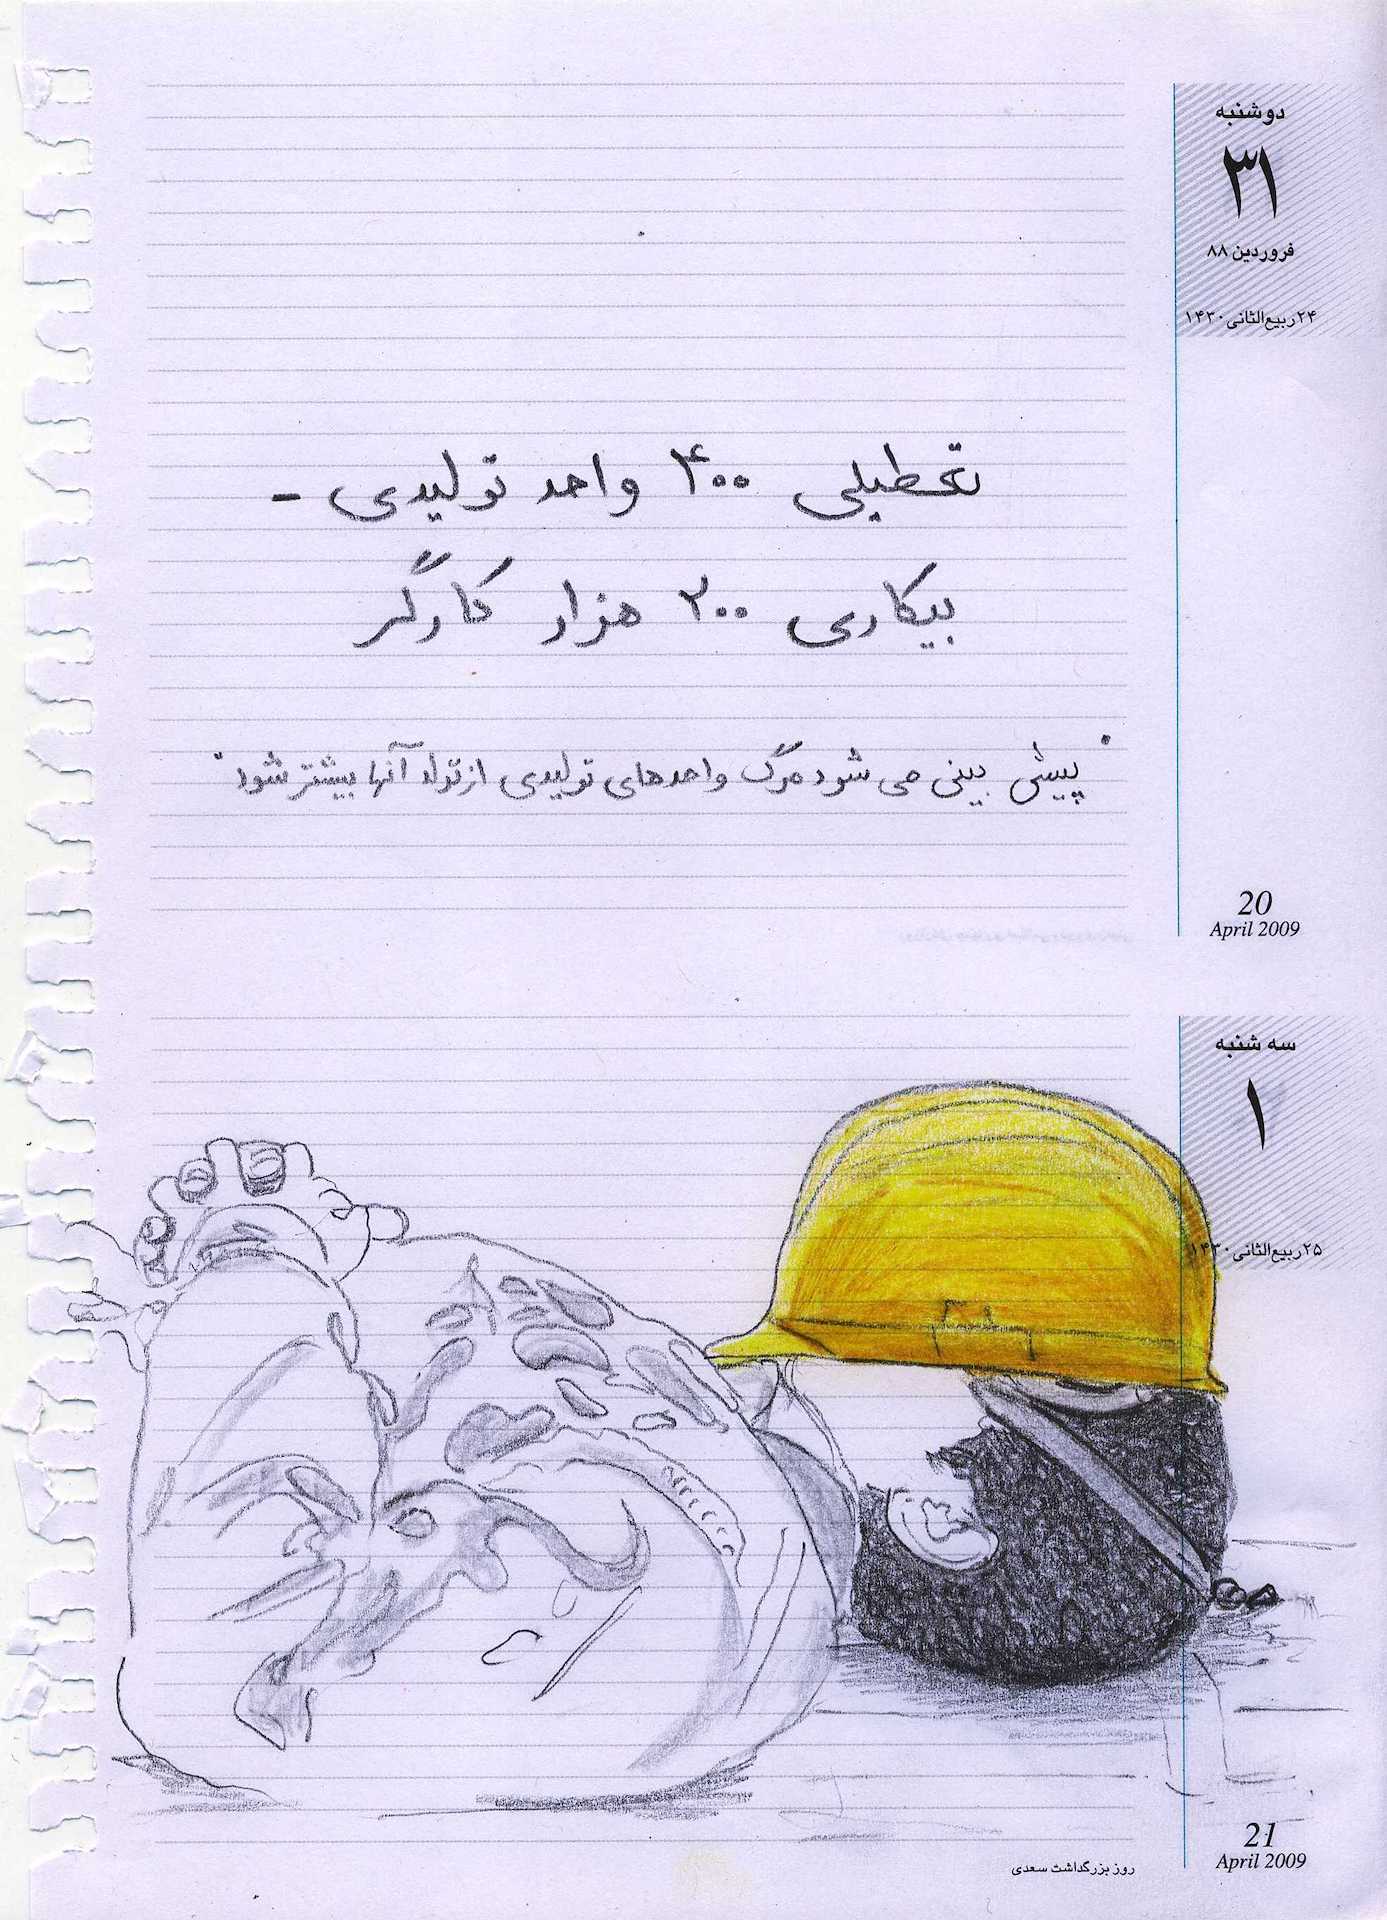 دوشنبه
۳۱
فروردین ۸۸
۲۴ ربیع‌الثانی ۱۴۳۰
تعطیلی ۴۰۰ واحد تولیدی -
بیکاری ۲۰۰ هزار کارگر
"پیش بینی می شود مرگ واحدهای تولیدی از تولد آنها بیشتر شود"
20
April 2009
سه شنبه
۱
۲۵ ربیع‌الثانی ۱۴۳۰
21
April 2009
روز بزرگداشت سعدی